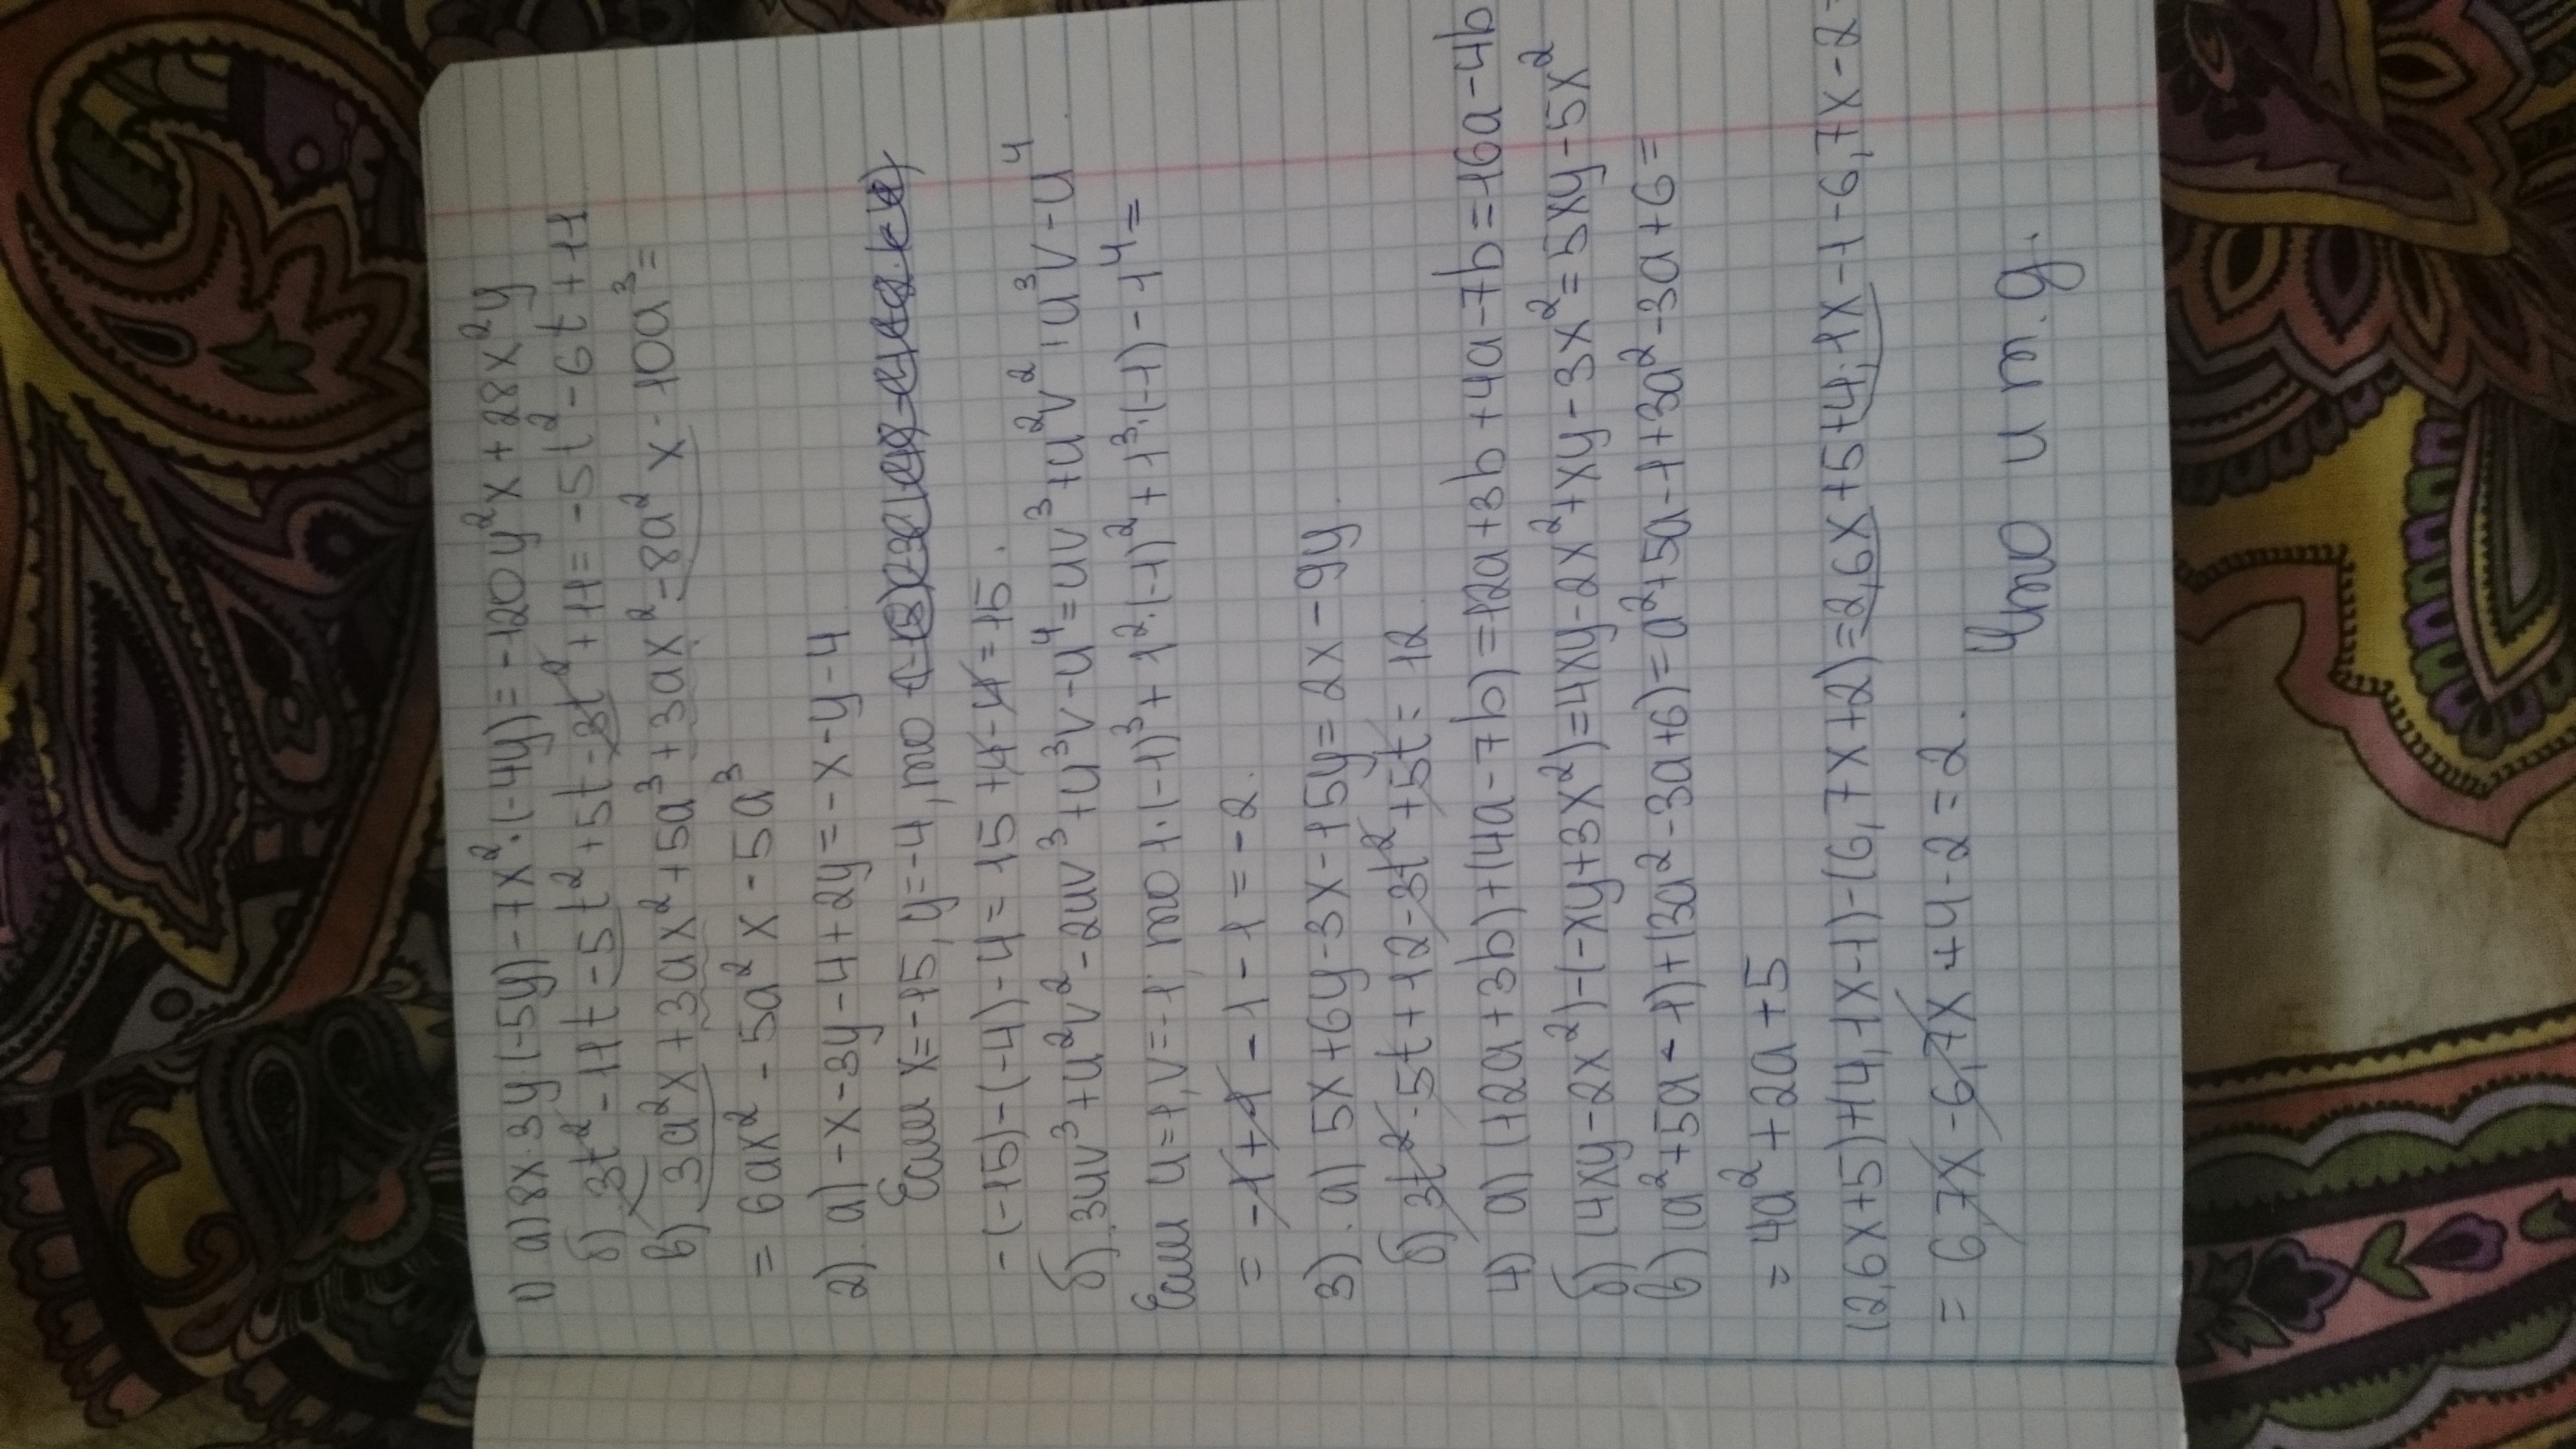 1) а) 8x·3y·(-5y)-7x²·(-4y)=-120y²x+28x²y
б) 3t²-11t-5t²+5t-3t²+11=-5t²-6t+11
в) 3a²x+3ax²+5a³+3ax²-8a²x-10a³=
=6ax²-5a²x-5a³
2). а) -x-3y-4+2y=-x-y-4
Если x=-15, y=-4, то
-(-15)-(-4)-4=15+4-4=15.
б). 3uv³+u²v²-2uv³+u³v-u⁴=uv³+u²v²+u³v-u⁴
Если u=1, v=-1, то 1·(-1)³+1²·(-1)²+1³·(-1)-1⁴=
=-1+1-1-1=-2.
3). а) 5x+6y-3x-15y=2x-9y.
б) 3t²-5t+12-3t²+5t=12
4) а) (12a+3b)+(4a-7b)=12a+3b+4a-7b=16a-4b
б) (4xy-2x²)-(-xy+3x²)=4xy-2x²+xy-3x²=5xy-5x²
в) (a²+5a-1)+(3a²-3a+6)=a²+5a-1+3a²-3a+6=
=4a²+2a+5
(2,6x+5)+(4,1x-1)-(6,7x+2)=2,6x+5+4,1x-1-6,7x-2=
=6,7x-6,7x+4-2=2.
Что и т.д.